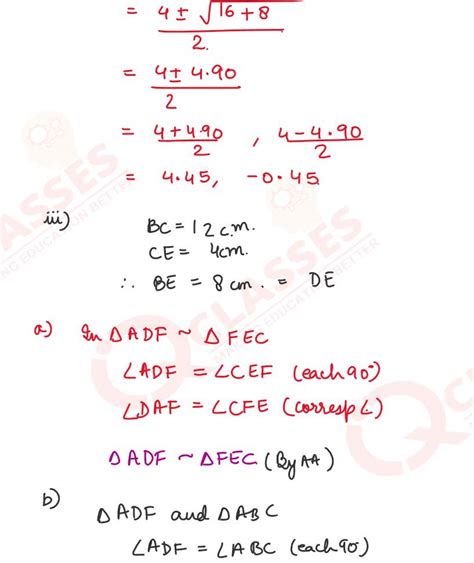 = 4 ± √16 + 8
2.
= 4 ± 4.90
2
= 4 + 4.90 , 4 - 4.90
2 2
= 4.45, -0.45
iii) BC = 12 cm.
CE = 4cm.
∴ BE = 8 cm. = DE
a) In △ADF ~ △FEC
∠ADF = ∠CEF (each 90°)
∠DAF = ∠CFE (corresp ∠)
△ADF ~ △FEC (By AA)
b) △ADF and △ABC
∠ADF = ∠ABC (each 90°)
CLASSES
MAKING EDUCATION BETTER